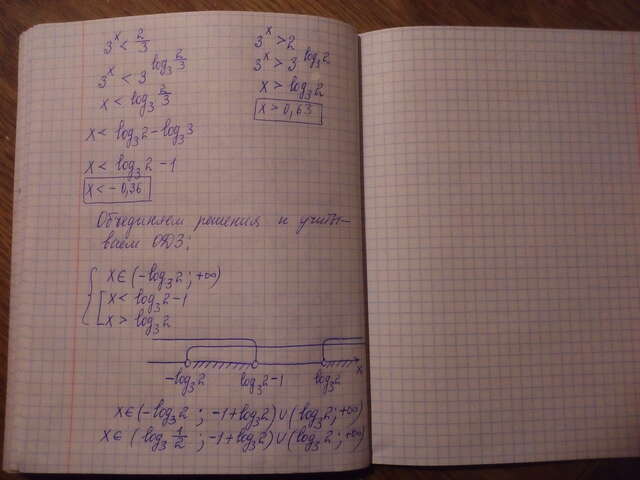 3^x < 2/3
3^x < 3^(log₃ 2/3)
x < log₃ 2/3
x < log₃2 - log₃3
x < log₃2 - 1
x < -0,36
3^x > 2
3^x > 3^(log₃2)
x > log₃2
x > 0,63
Объединяем решения и учиты-
ваем ОДЗ;
x ∈ (-log₃2 ; +∞)
x < log₃2 - 1
x > log₃2
-log₃2 log₃2-1 log₃2 x
x ∈ (-log₃2 ; -1+log₃2) ∪ (log₃2; +∞)
x ∈ (log₃ 1/2 ; -1+log₃2) ∪ (log₃2 ; +∞)